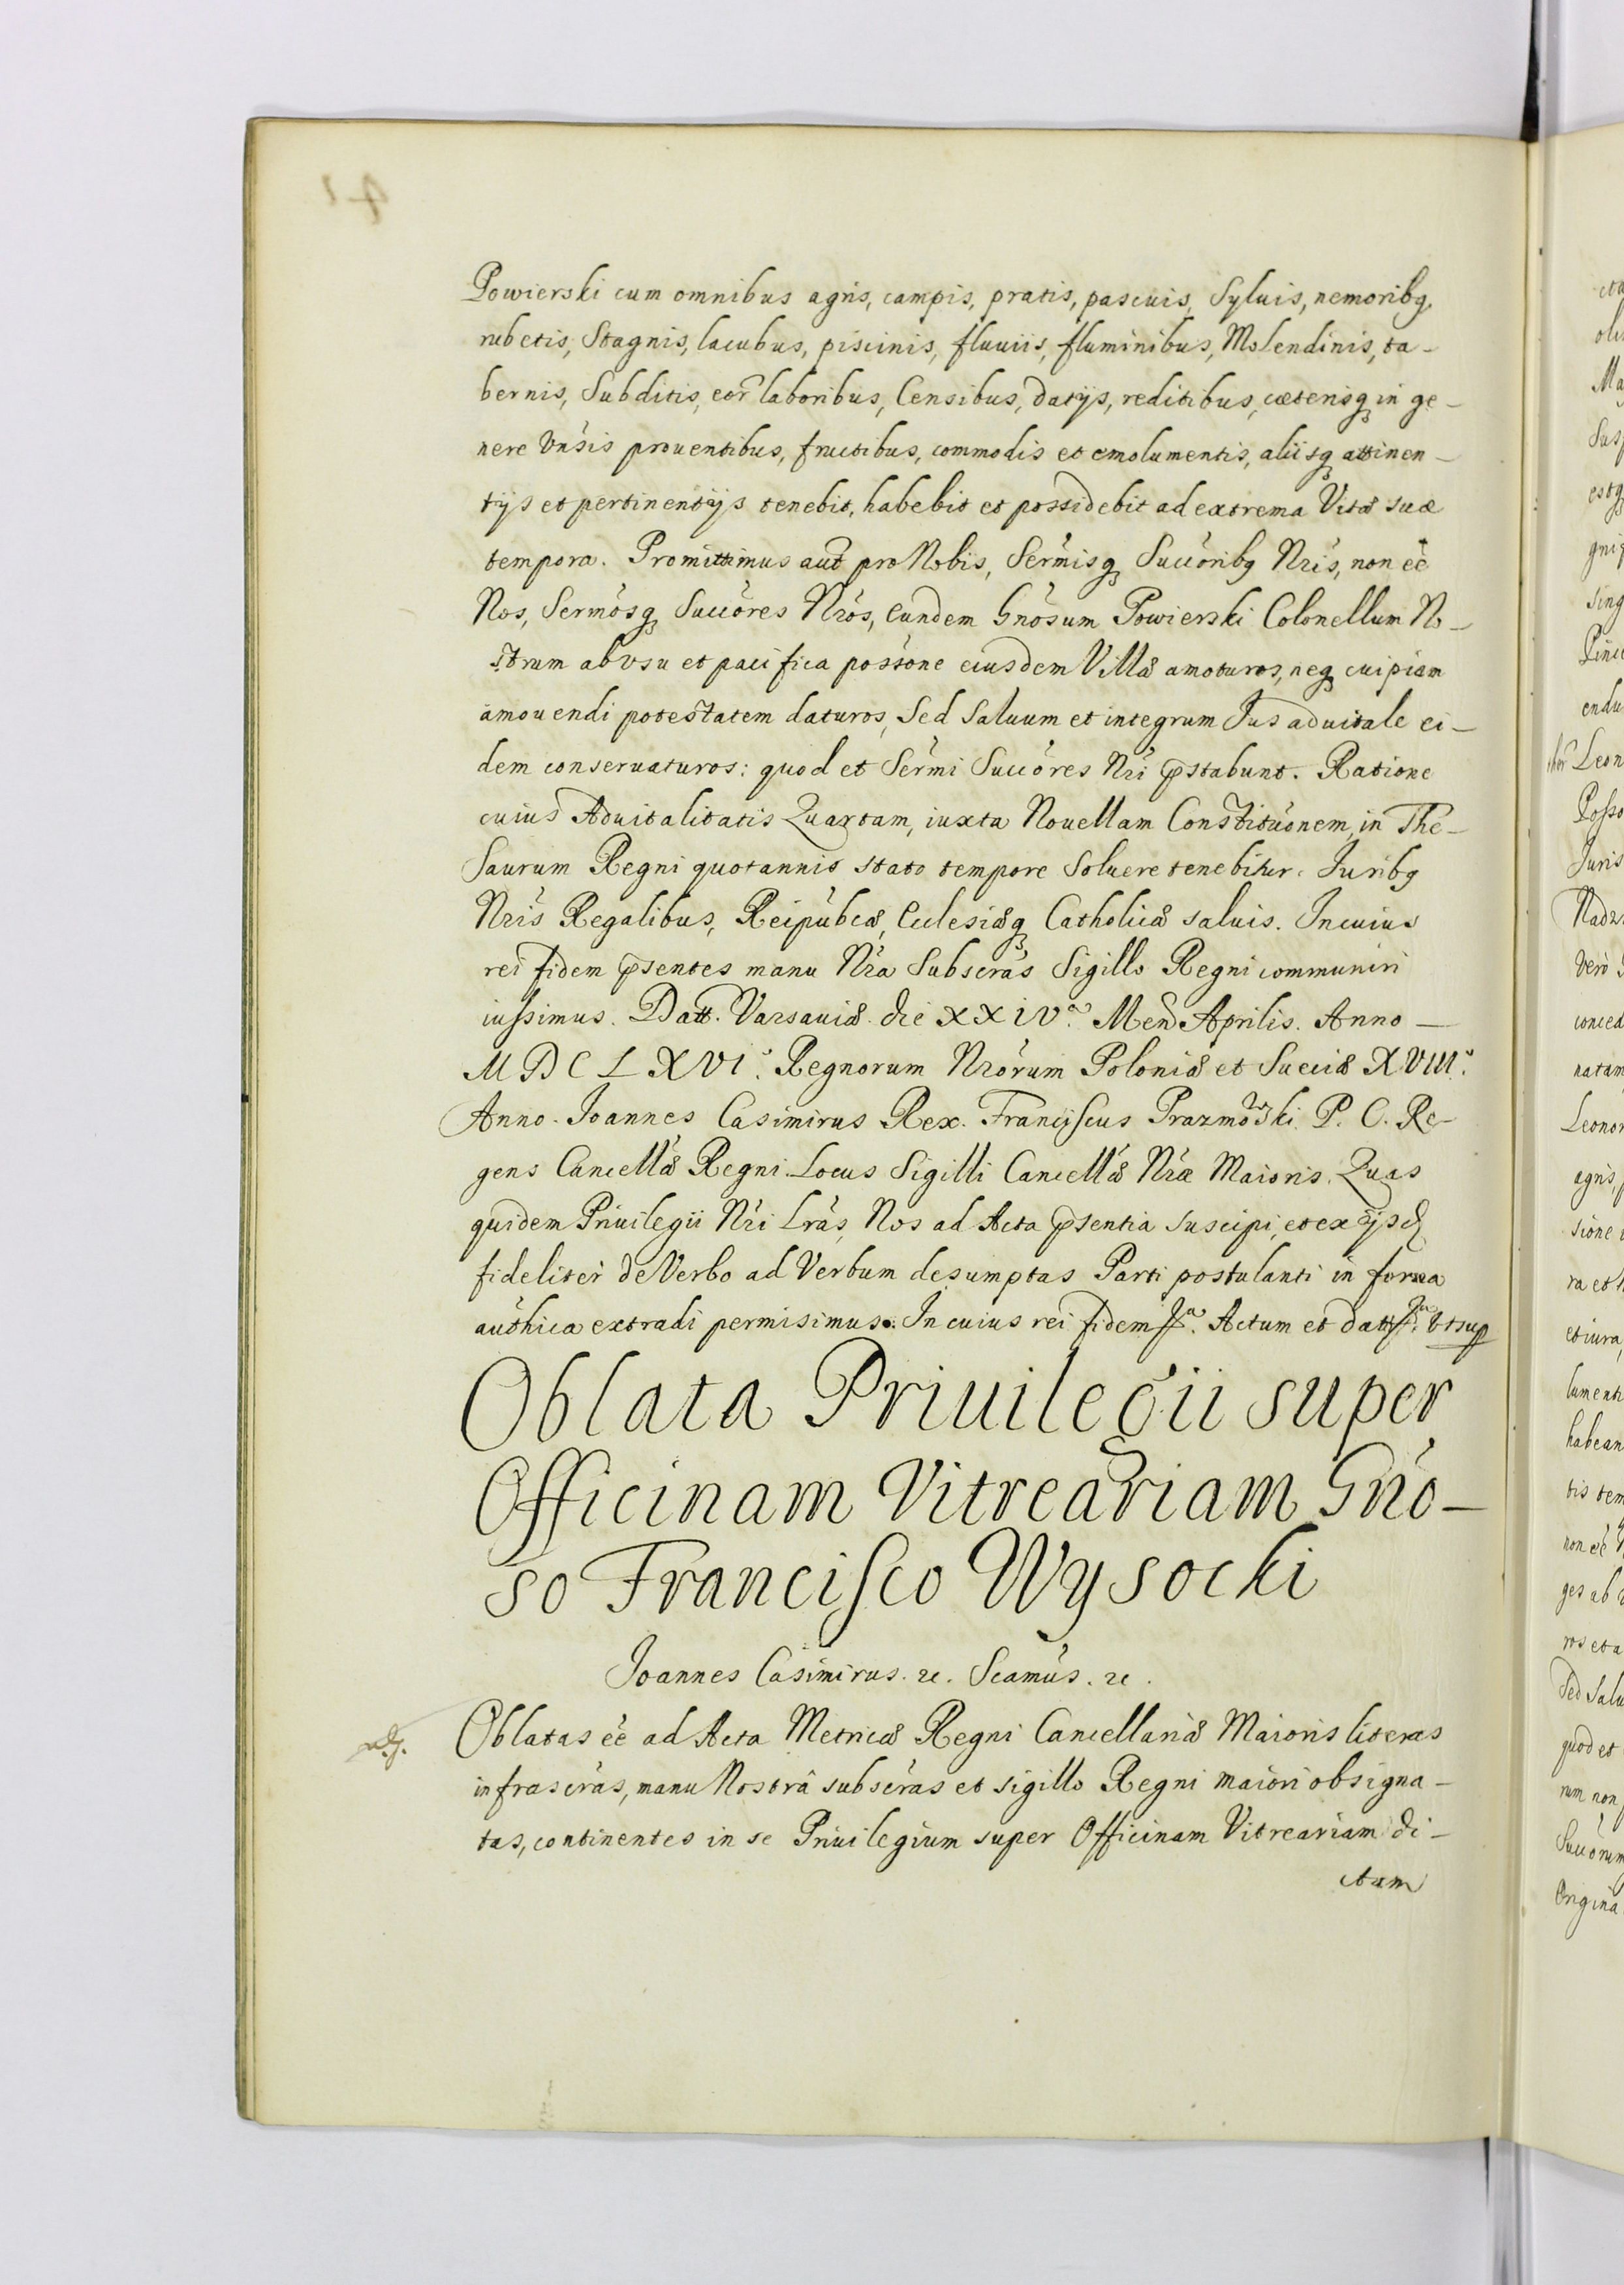 Powierski cum omnibus agris, campis, pratis, pascuis, Syluis, nemoribq,
rubetis, Stagnis, lacubus, piscinis, fluuiis, fluminibus, Molendinis, ta-
bernis, Subditis, eor laboribus, Censibus, datijs, reditibus, cæterisq in ge-
nere Vnsis prouentibus, fructibus, commodis et emolumentis, aliisq attinen-
tijs et pertinentijs tenebit, habebit et possidebit ad extrema Vitæ suæ
tempora. Promittimus aut pro Nobis, Sermisq Succoribq Nris, non eé
Nos, Sermosq Succores Nros, Eundem Gnosum Powierski Colonellum No-
strum ab vsu et pacifica possone eiusdem Villæ amoturos, neq cuipiam
amouendi potestatem daturos, Sed Saluum et integrum Jus aduitale ei-
dem conseruaturos: quod et Sermi Succores Nri pstabunt. Ratione
cuius Aduitalitatis Quartam, iuxta Nouellam Constituonem, in The-
Saurum Regni quotannis stato tempore Soluere tenebitur. Juribq
Nris Regalibus, Reipubcæ, Ecclesiæq Catholicæ saluis. In cuius
rei fidem psentes manu Nra Subscras Sigillo Regni communiri
iussimus. Datt. Varsauiæ. die XXIVa. Men Aprilis. Anno —
MDCLXVIo. Regnorum Nrorum Poloniæ et Sueciæ XVIIIo.
Anno. Joannes Casimirus Rex. Franciscus Prazmowski. P. C. Re-
gens Cancellæ Regni. Locus Sigilli Cancellæ Nræ Maioris. Quas
quidem Priuilegii Nri Lras, Nos ad Acta psentia suscipi, et ex ijsd
fideliter de Verbo ad Verbum desumptas Parti postulanti in forma
authica extradi permisimus. In cuius rei fidem ffa. Actum et datt ffia. Vt sup
Oblata Priuilegii super
Officinam Vitreariam Gno-
so Francisco Wysocki
Joannes Casimirus. rc. Scamus. rc.
Oblatas eé ad Acta Metricæ Regni Cancellariæ Maioris literas
infrascras, manu Nostrâ subscras et sigillo Regni maiori obsigna-
tas, continentes in se Priuilegium super Officinam Vitreariam di-
ctam